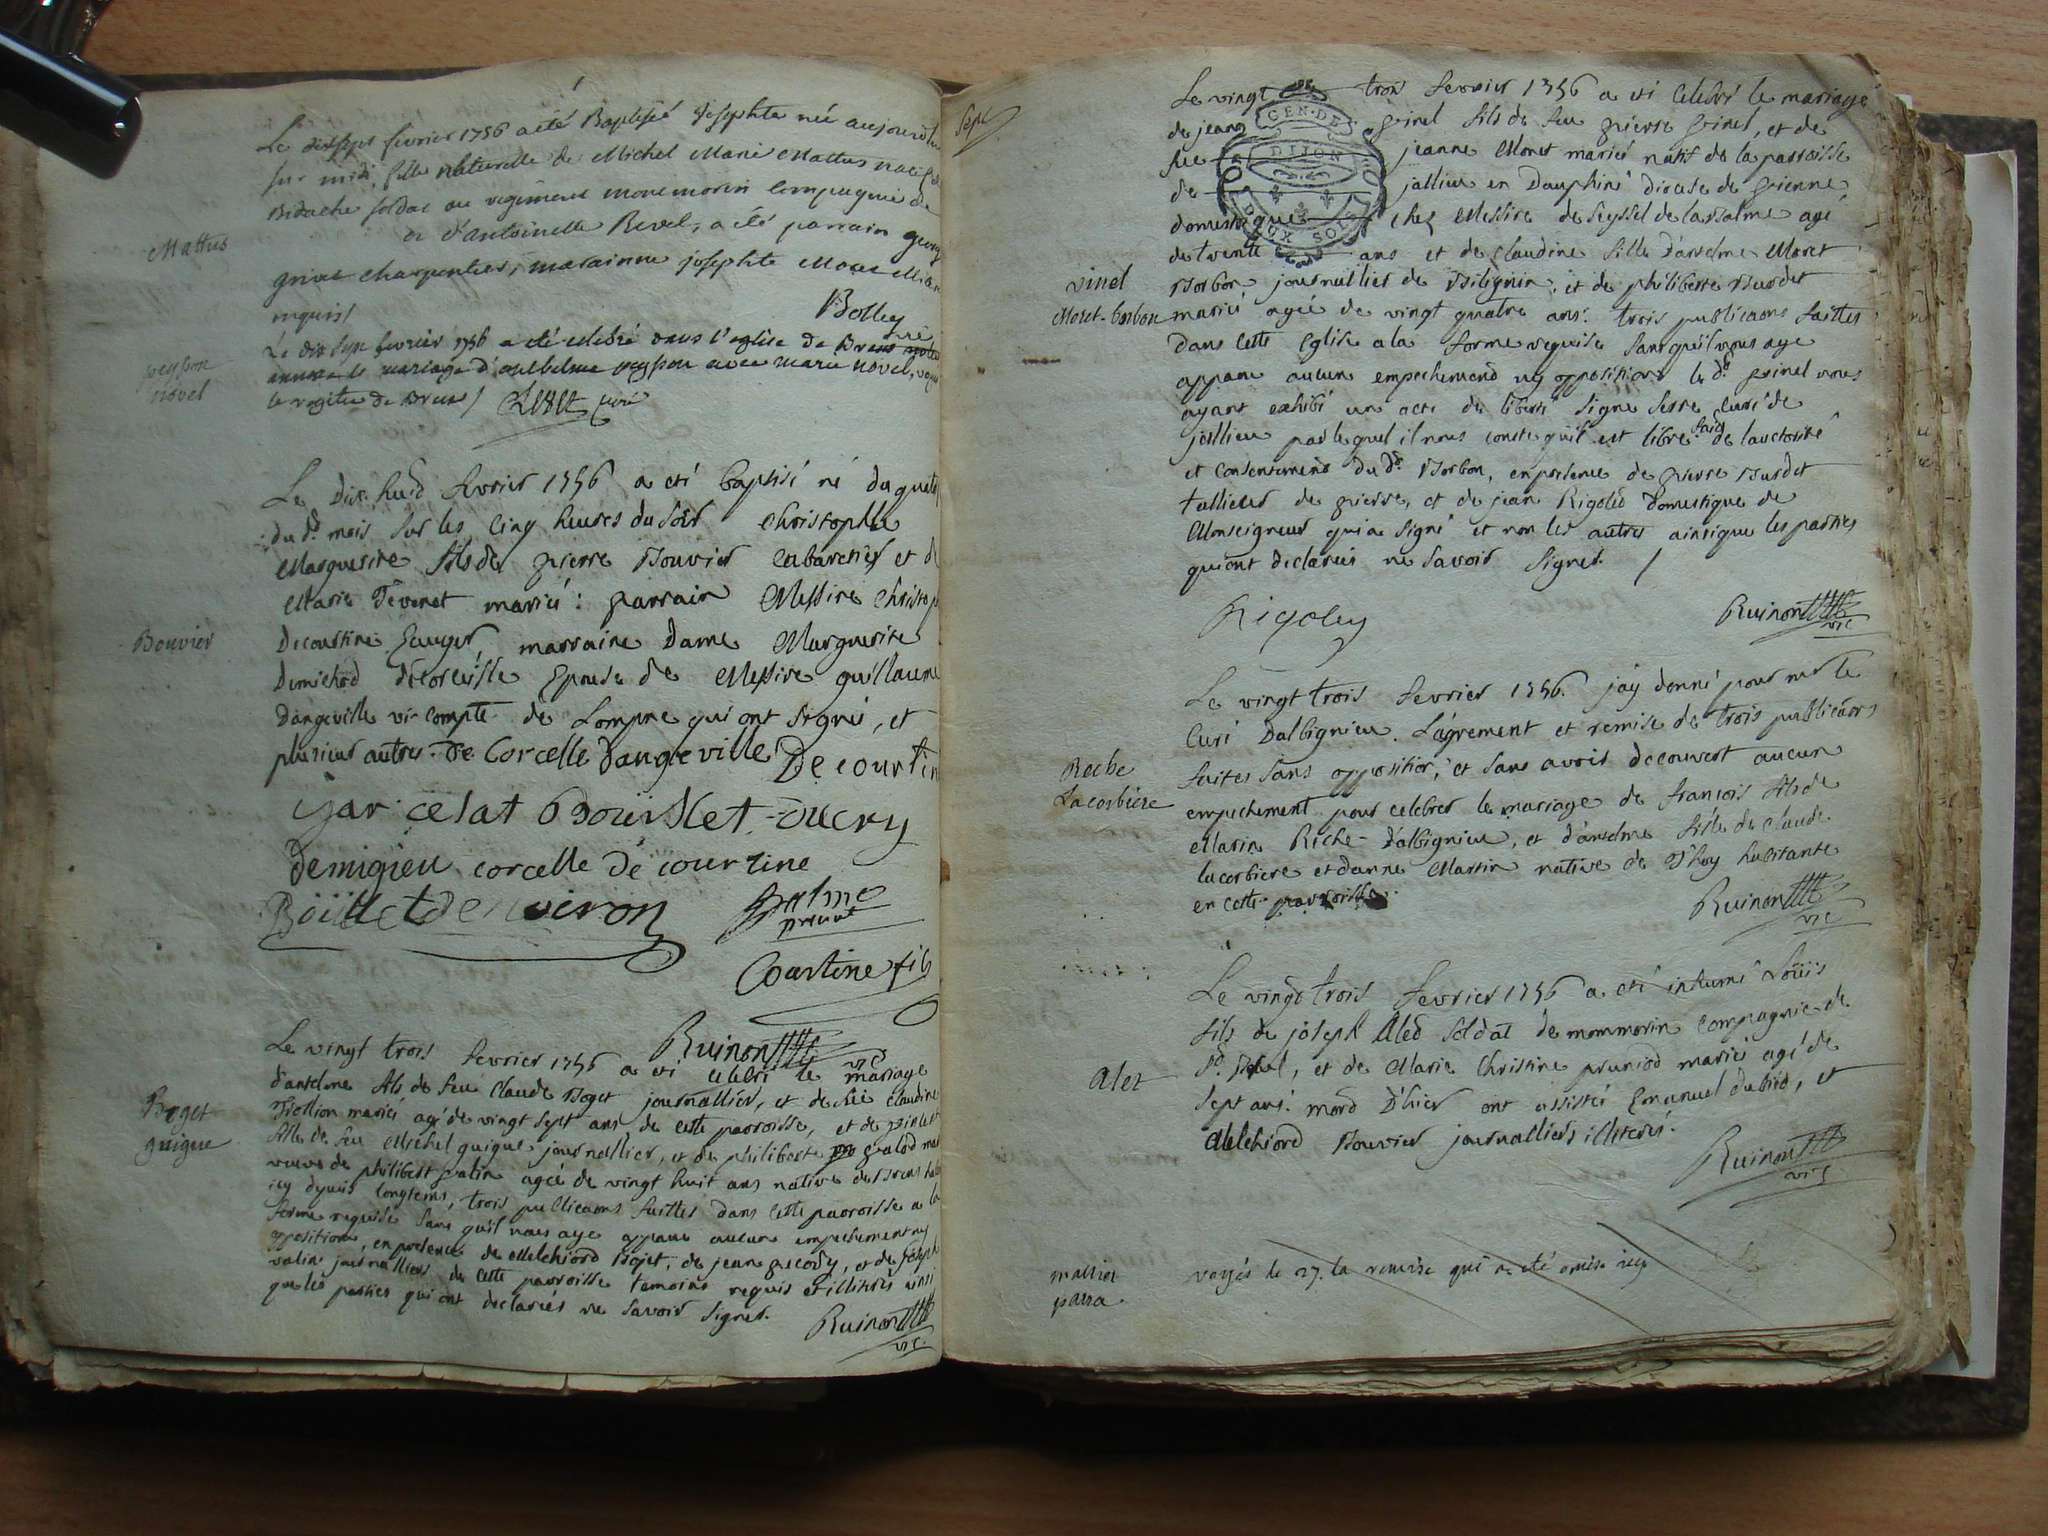 Le dixsept fevrier 1756 a été Baptisé Josephte née aujourdhu
sur midi, fille naturelle de Michel Marie Mattus natif de
Bidache soldat au regiment monmorin Compagnie de
et d'Antoinette Revel, a été parrain
Mattus
charpentier, marainne josephte
requis /
Bolley
Le dix sept fevrier 1756 a été celebré dans l'eglise de Brens
annexe le mariage d'anthelme peysson avec marie novel, voyés
peysson
novel
le registre de Brens / curé
Le Dix huid fevrier 1756 a eté baptisé né du quatorz
du dt mois sur les Cinq heures du soir Christophle
Marguerite fils de pierre Bouvier Cabaretier et de
Marie Tévenet mariés : parrain Messire Christop
Bouvier
Decourtine marraine Dame Marguerite
Demichod de corcelle Epouse de Messire guillaume
Dangeville vi-compte de Lompne qui ont signés, et
plusieur autres. De Corcelle Dangeville De courtin
ducry
demigieu corcelle de courtine
Balme
present
Courtine fils
Ruinon vic
Le vingt trois fevrier 1756 a eté celebré le mariage
d'antelme fils de feu Claude Boget journallier, et de feüe Claudine
mariés agé de vingt sept ans de cette parroisse, et de
Boget
guigue
fille de feu Michel guigue journallier, et de philiberte
veuve de philibert agée de vingt huit ans native de Brens
icy depuis longtems, trois publicaons faittes dans cette parroisse a la
forme requise sans qu'il nous aye apparu aucun empechement ny
opposition, en presence de Melchiord Boget, de jean et de joseph
journalliers de cette parroisse temoins requis et illiterés ainsi
que les parties qui ont declarés ne savoir signer.
Ruinon
vic
Sept
GEN. DE
DIJON
DEUX SOLS
Le vingt trois fevrier 1756 a eté Celebré le mariage
de jean vinel fils de feu pierre vinel, et de
feüe jeanne Moret mariés natif de la parroisse
de jallieu en Dauphiné diocese de vienne
domestique chez Messire de Seyssel de la Balme agé
de trente ans et de Claudine fille d'anselme Moret
vinel
Moret-borbon
Borbon journallier de Bilignin, et de philiberte Burdet
mariés agée de vingt quatre ans. trois publicaons faittes
dans cette Eglise a la forme requise sans qu'il nous aye
apparu aucun empechement ny opposition le dt vinel nous
ayant exhibé un acte de liberté signé Serre Curé de
jallieu par lequel il nous conste qu'il est libre. fait de lauctorité
et consentement du dt Borbon, en presence de pierre Burdet
tallieur de pierre, et de jean Rigoled Domestique de
Monseigneur qui a signé et non les autres ainsi que les parties
qui ont declarés ne savoir signer. /
Rigoley
Ruinon
vic
Le vingt trois fevrier 1756. j'ay donné pour mr le
Curé D'albignieu. L'agrement et remise de trois publicaons
faites sans opposition, et sans avoir decouvert aucun
Reche
Lacorbiere
empechement pour celebrer le mariage de francois fils de
Marin Riche d'albignieu, et d'anselme fille de Claude
Lacorbiere et danne Martin native de habitante
en cette parroisse.
Ruinon
vic
Le vingt trois fevrier 1756 a eté inhumé Loüis
fils de joseph Aled soldat de mommorin Compagnie de
et de Marie Christine mariés agé de
Alet
sept ans. mord d'hier ont assistés Emanuel dubied, et
Melchiord Bouvier journalliers illiterés.
Ruinon
vic
parra
voyés le 27. la remise qui a été omise icy